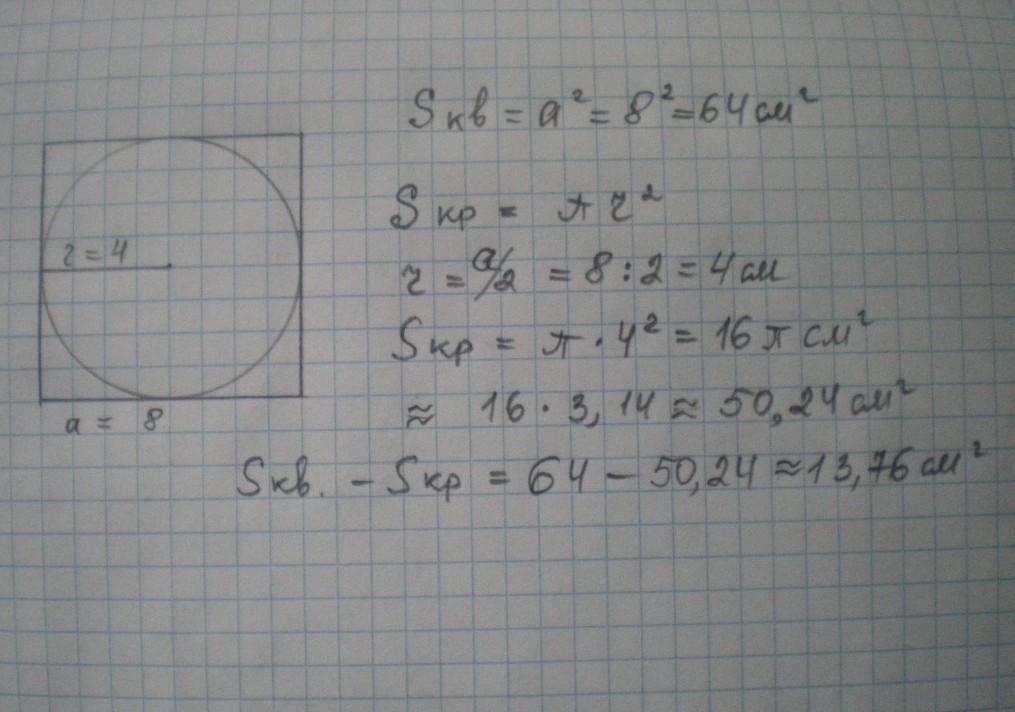 Sкв = a² = 8² = 64 см²
Sкр = π r²
r = 4
r = a/2 = 8 : 2 = 4 см
Sкр = π · 4² = 16 π см²
≈ 16 · 3,14 ≈ 50,24 см²
a = 8
Sкв. – Sкр = 64 – 50,24 ≈ 13,76 см²